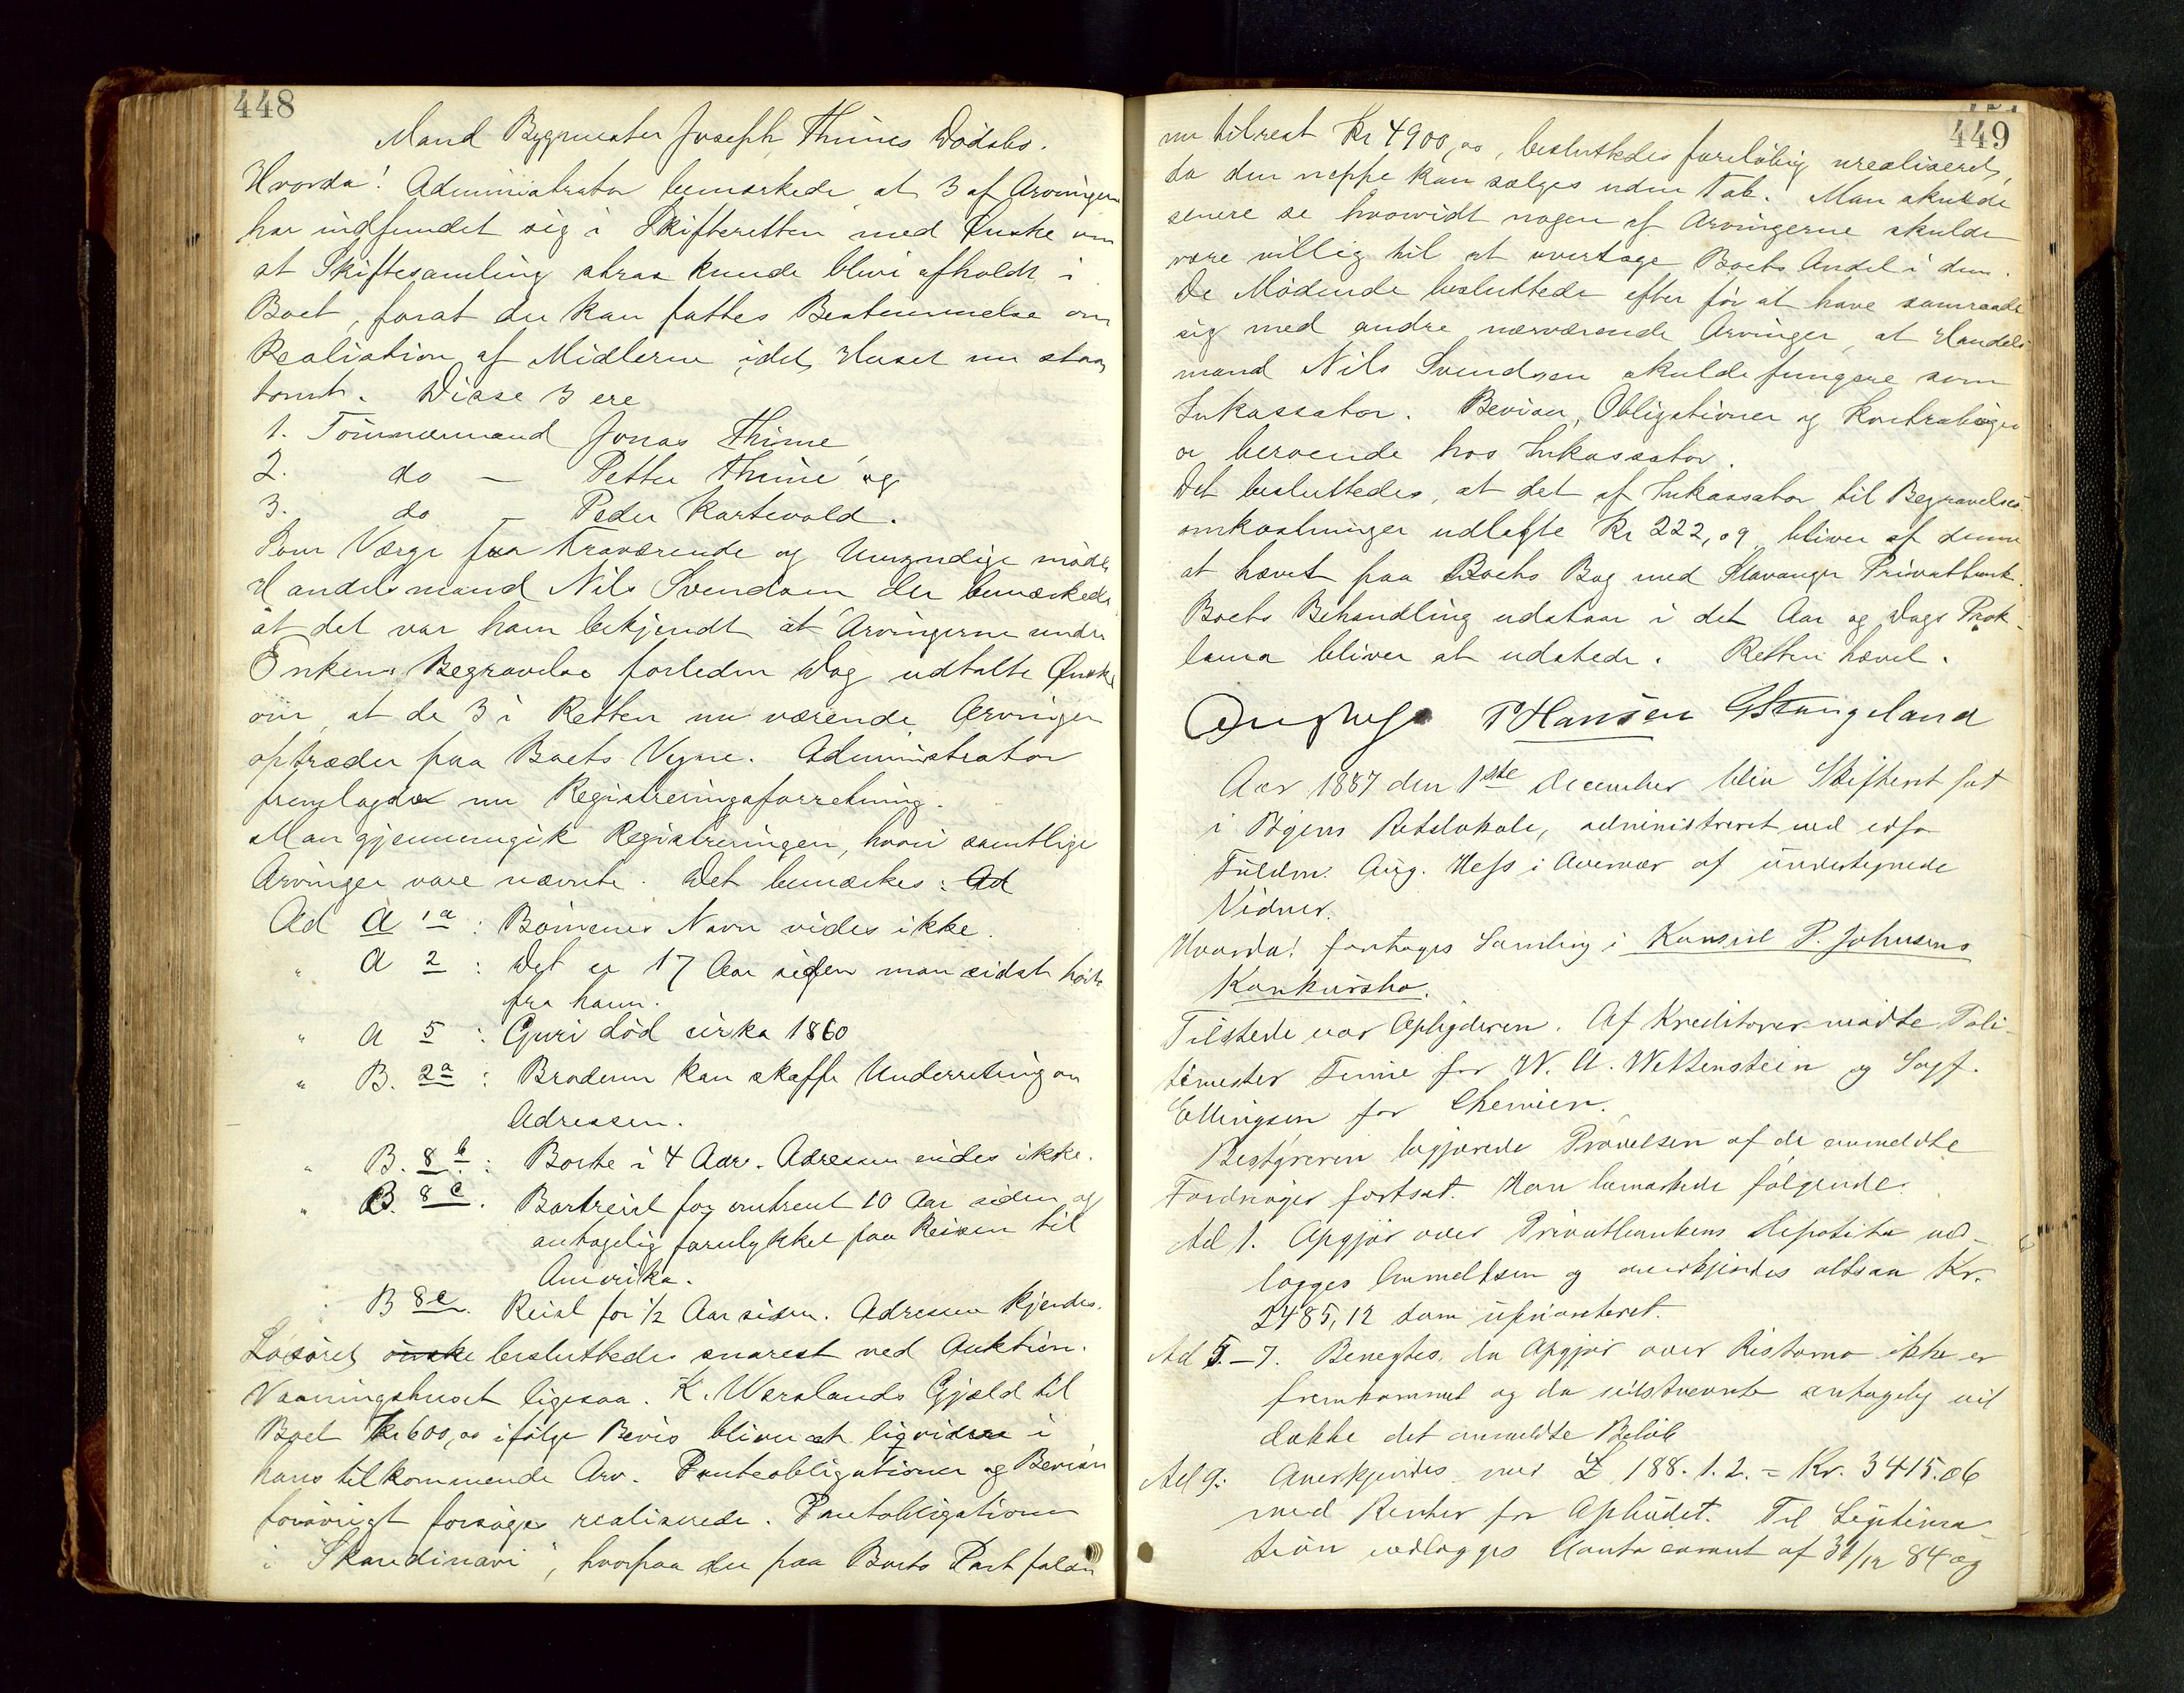 448
Mand Bygmester Joseph Thimes Dødsbo.
Hvorda! Administrator bemærkede, at 3 af Arvingerne
har indfundet sig i Skifteretten med Ønske om
at Skiftesamling strax kunde blive afholdt i
Boet, forat der kan fattes Bestemmelse om
Realisation af Midlerne, idet Huset nu staar
tomt. Disse 3 ere
1. Tømmermand Jonas Thime,
2. do — Petter Thime og
3. do — Peder Kartevold.
Som Værge for Fraværende og Umyndige mødte
Handelsmand Nils Svendsen der bemærkede
at det var ham bekjendt at Arvingerne under
Enkens Begravelse forleden Dag udtalte Ønske
om, at de 3 i Retten nu værende Arvinger
optræder paa Boets Vegne. Administrator
fremlagde nu Registreringsforretning.
Man gjennemgik Registreringen, hvori samtlige
Arvinger vare nævnte. Det bemærkes: Ad
Ad A 1a : Børnenes Navn vides ikke.
" A 2 : Det er 17 Aar siden man sidst hørte
fra ham.
" A 5 : Guri død cirka 1860
" B. 2a : Broderen kan skaffe Underretning om
Adressen.
" B. 8b : Borte i 4 Aar. Adressen vides ikke.
" B. 8c. Bortreist for omtrent 10 Aar siden og
antagelig forulykket paa Reisen til
Amerika.
" B 8e. Reist for 1/2 Aar siden. Adressen kjendes.
Løsøret ønske besluttedes snarest ved Auktion.
Vaaningshuset ligesaa. K. Werslands Gjæld til
Boet Kr 600,00 ifølge Bevis bliver at likvidere i
hans tilkommende Arv. Panteobligationer og Beviser
forøvrigt forsøges realiserede. Pantobligationen
i "Skandinavi", hvorpaa der paa Boets Part falder
449
nu tilrest Kr 4900,00, besluttedes foreløbig urealiseret,
da den neppe kan sælges uden Tab. Man skulde
senere se hvorvidt nogen af Arvingerne skulde
være villig til at overtage Boets Andel i den.
De Mødende besluttede efter før at have samraadt
sig med andre nærværende Arvinger, at Handels
mand Nils Svendsen skulde fungere som
Inkassator. Beviser, Obligationer og Kontrabøger
er beroende hos Inkassator.
Det besluttedes, at det af Inkassator til Begravelses
omkostninger udlagte Kr 222,09 bliver af denne
at hævet paa Boets Bog med Stavanger Privatbank.
Boets Behandling udstaar i det Aar og Dags Prok-
lama bliver at udstede. Retten hævet.
P Hansen G Stangeland
Aar 1887 den 1ste December blev Skifteret sat
i Byens Retslokale, administreret ved edsf.
Fuldm. Aug. Hess i Overvær af undertegnede
Vidner.
Hvorda! foretoges Samling i Konsul P. Johnsens
Konkursbo.
Tilstede var Opbyderen. Af Kreditorer mødte Poli-
timester Timme for W. A. Wettenstein og Sagf.
Ellingsen for Chemien.
Bestyreren begjærede Prøvelsen af de anmeldte
Fordringer fortsat. Han bemærkede følgende:
Ad 1. Opgjør over Privatbankens Deposita ved-
lægges Anmeldelsen og anerkjendes altsaa Kr.
2485,12 som uprioriteret.
Ad 5.–7. Benegtes, da Opgjør over Ristorno ikke er
fremkommet og da sidstnævnte antagelig vil
dække det anmeldte Beløb
Ad 9. Anerkjendes med £ 188.1.2. = Kr. 3415.06
med Renter fra Opbudet. Til Legitima-
tion vedlægges Conto courant af 31/12 84 og